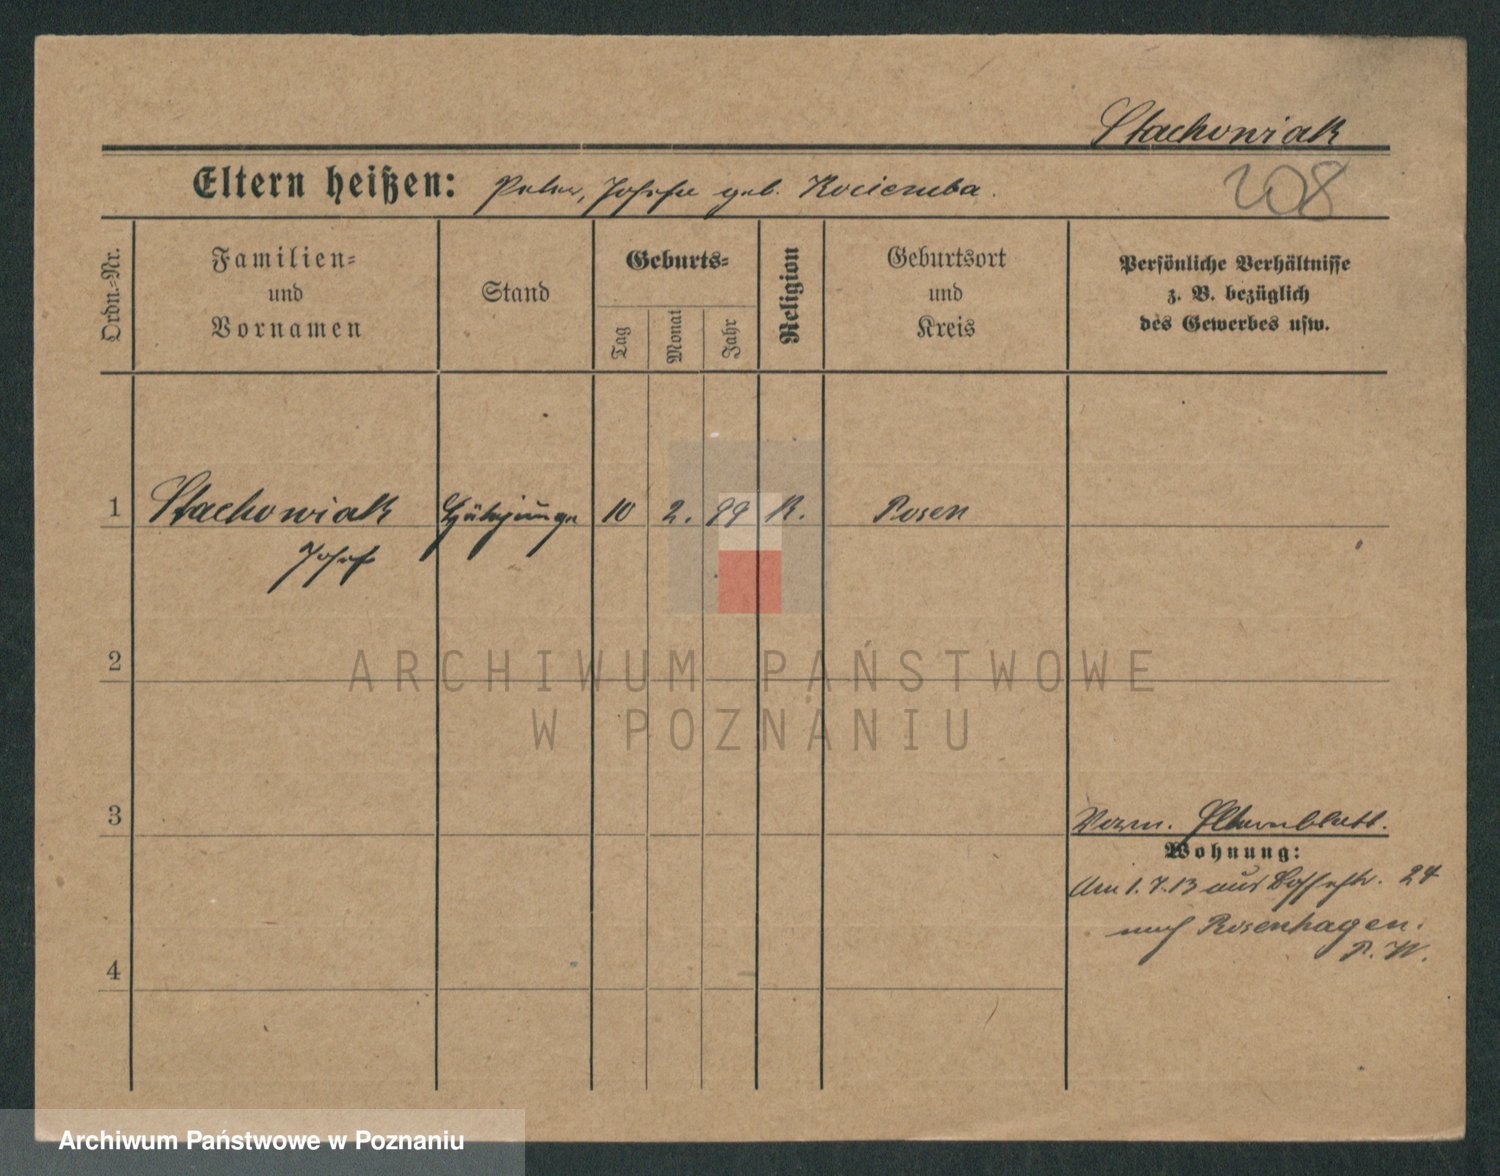 Stachowiak
208
Eltern heißen: Peter, Josefa geb. Kociemba.
Ordn.-Nr.
Familien-
und
Vornamen
Stand
Geburts-
Tag
Monat
Jahr
Religion
Geburtsort
und
Kreis
Persönliche Verhältnisse
z. B. bezüglich
des Gewerbes usw.
1 Stachowiak 10 2. 99 K. Posen
Josef
2
ARCHIWUM PAŃSTWOWE
W POZNANIU
3
Verm. Elternblatt.
Wohnung:
Am 1.7.13 aus 24
nach Rosenhagen.
P. W.
4
Archiwum Państwowe w Poznaniu